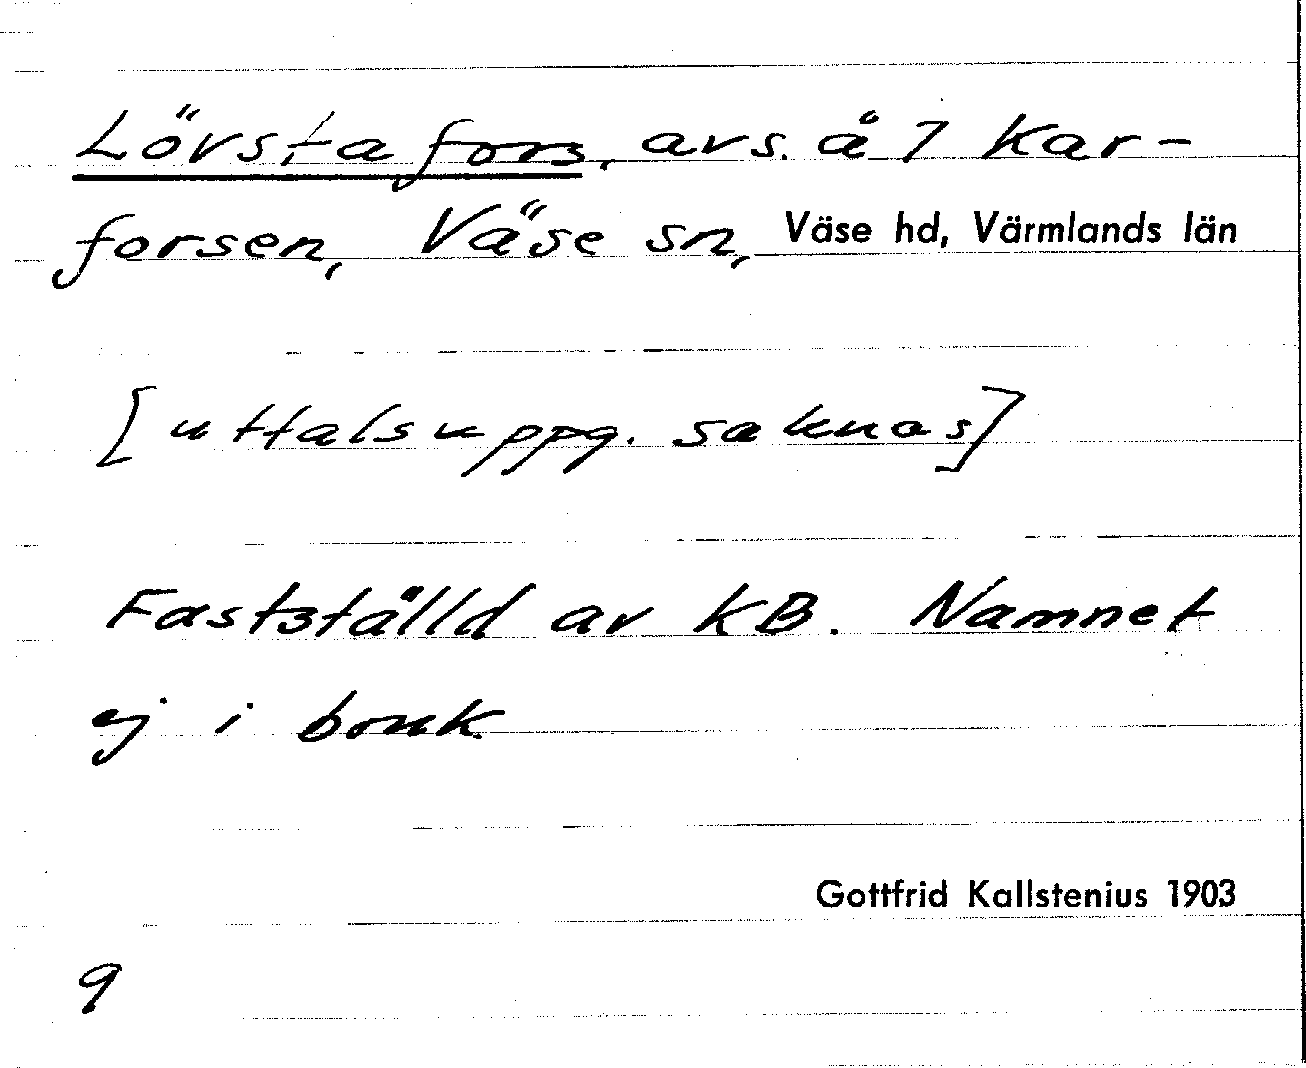 Lövstafors, avs. å 7 Kar-
forsen, Väse sn, Väse hd, Värmlands län
[uttalsuppg. saknas]
Fastställd av KB. Namnet
ej i bruk.
Gottfrid Kallstenius 1903
9